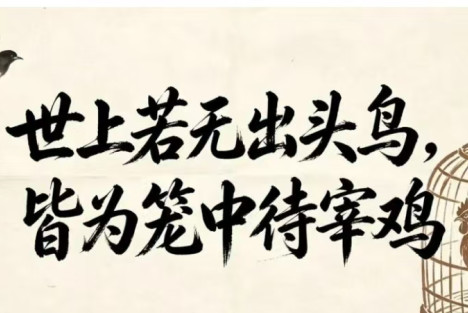 世上若无出头鸟，
皆为笼中待宰鸡